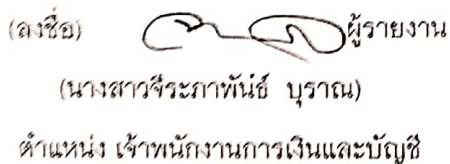 (ลงชื่อ) ผู้รายงาน
(นางสาวจีระภาพันธ์ บุราณ)
ตำแหน่ง เจ้าพนักงานการเงินและบัญชี